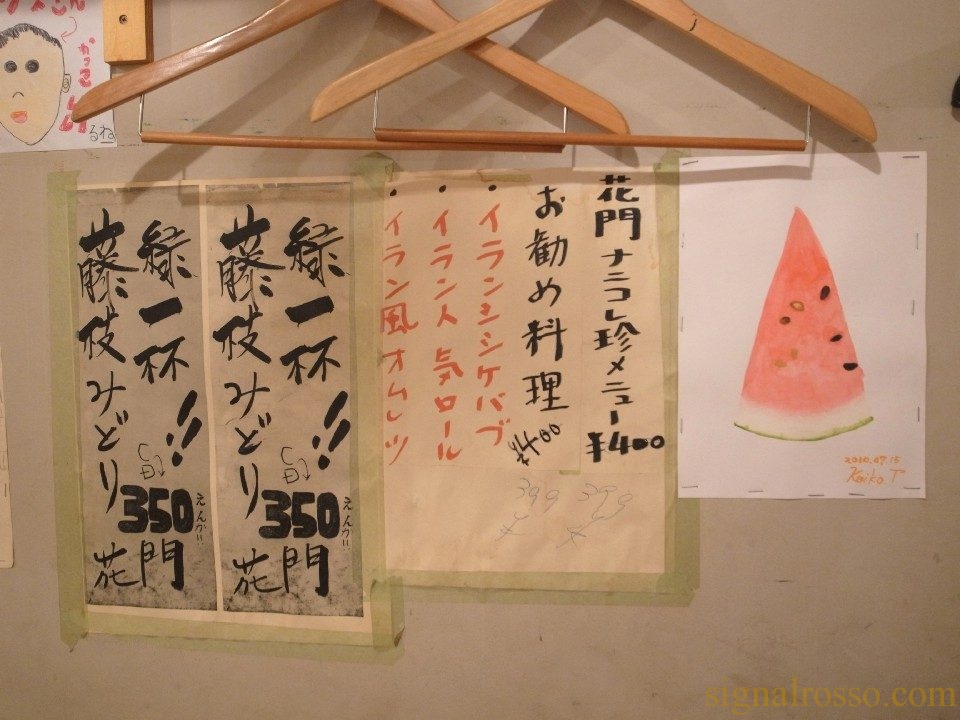 かってるい
るね
緑一杯!!
藤枝みどり
350えんか!!
花門
緑一杯!!
藤枝みどり
350えんか!!
花門
花門ナニコレ珍メニュー ¥400
お勧め料理 ¥400
・イランシシケバブ
・イラン人気ロール
・イラン風オムレツ
399
399
2010.09.15
Keiko T
signalrosso.com